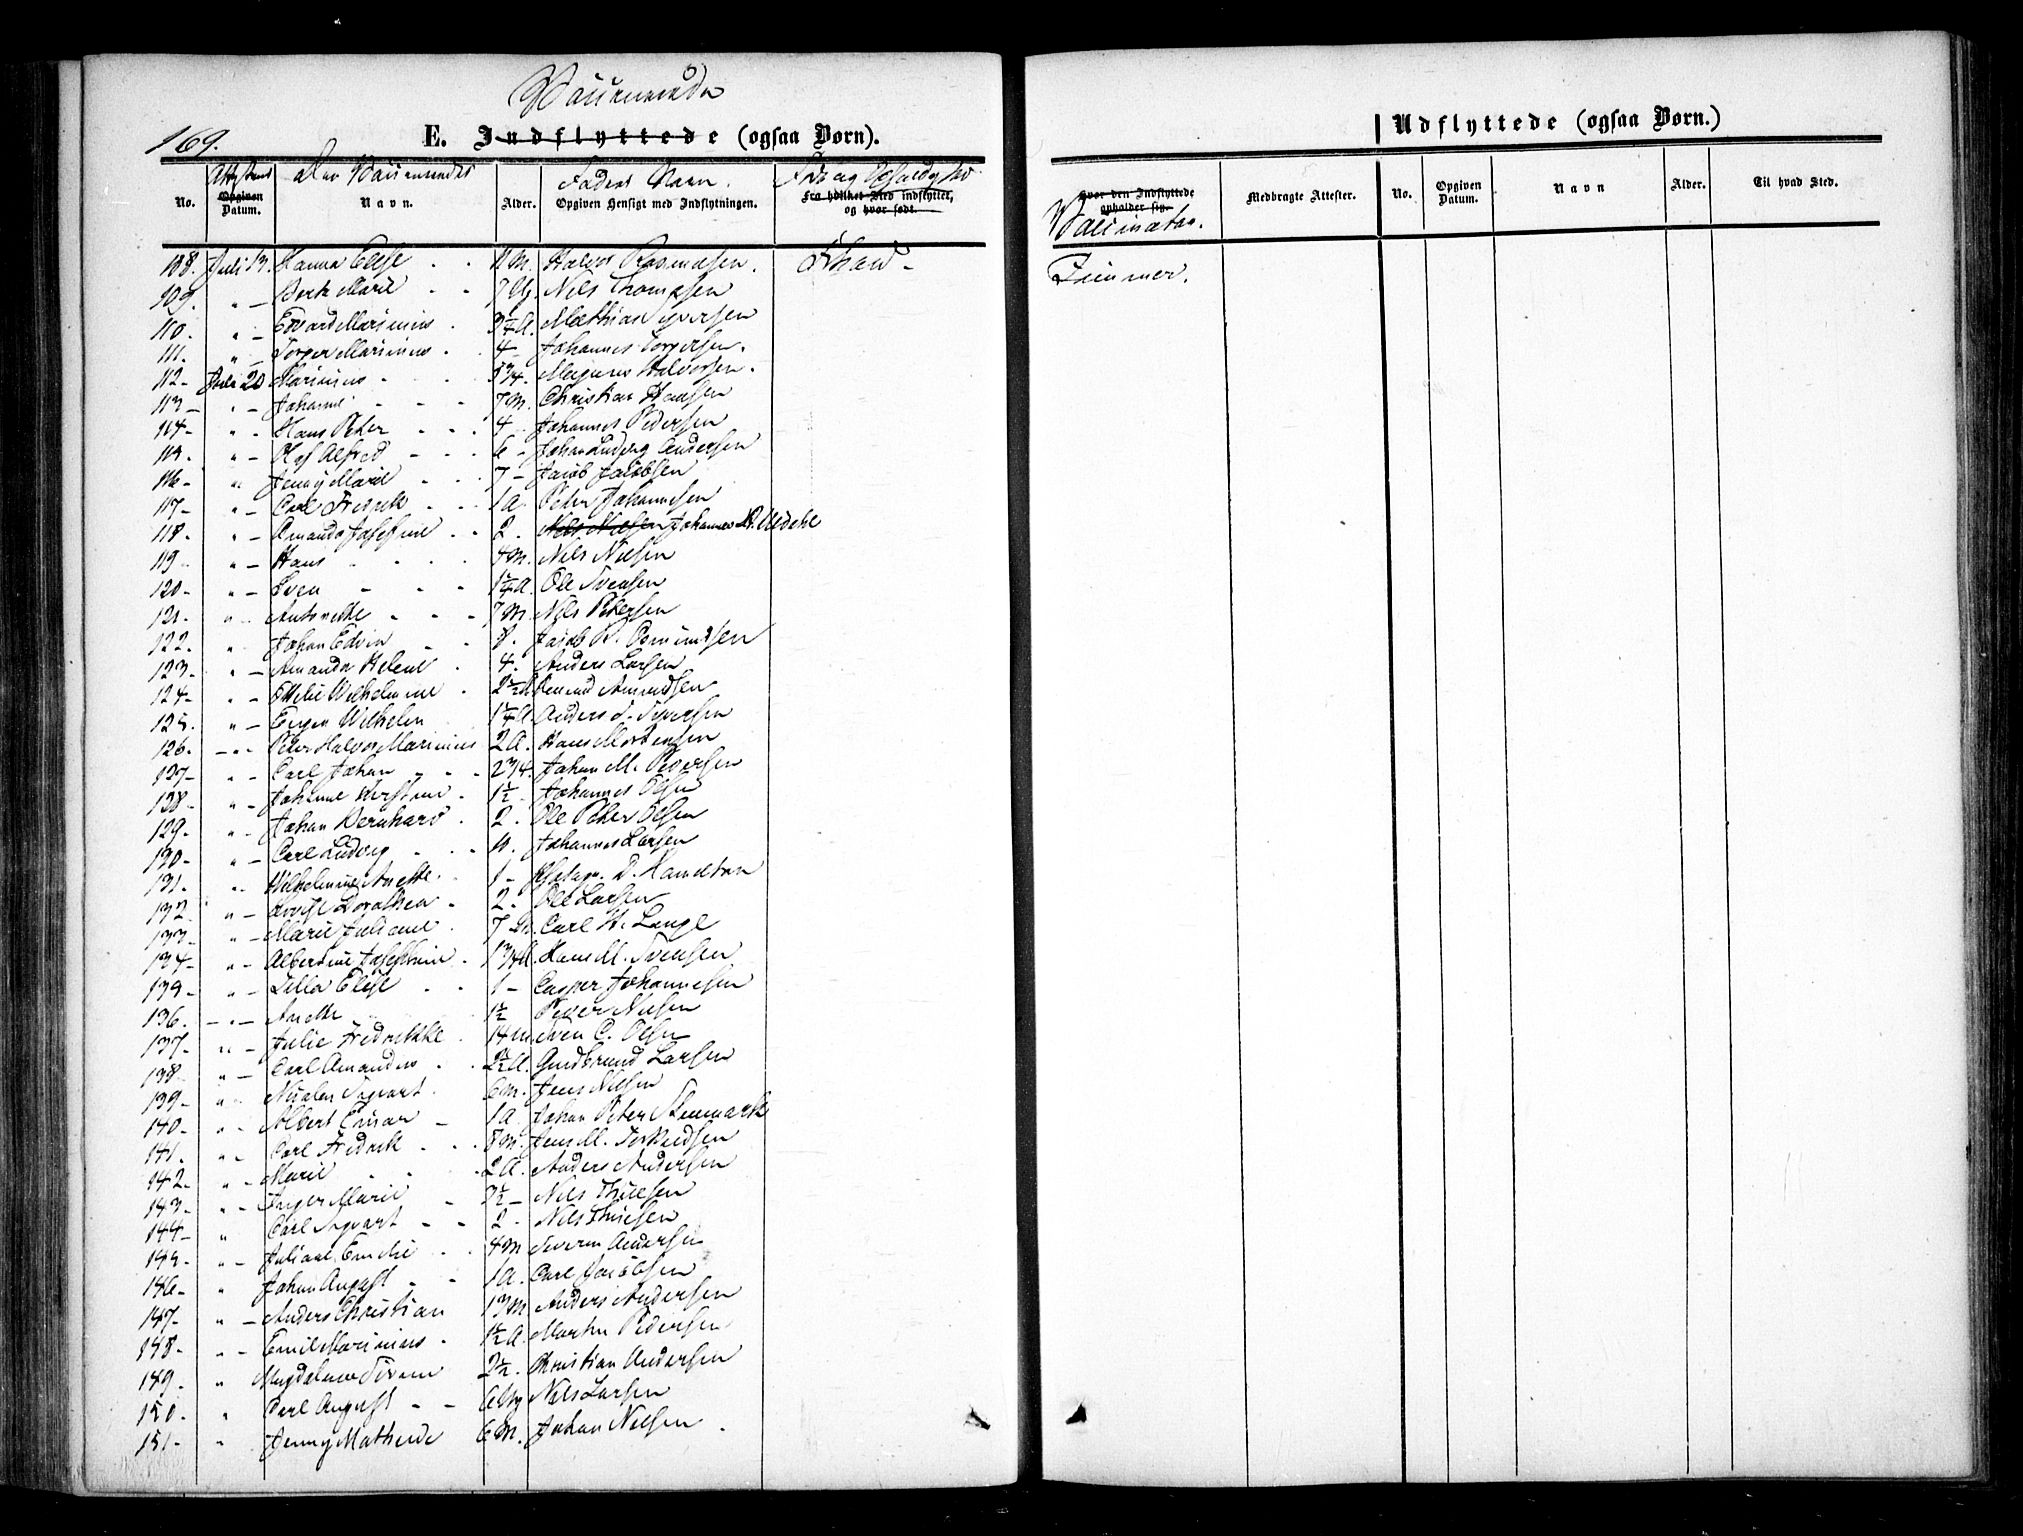 Vaccinerede
169.
E. Indflyttede (ogsaa Børn).
No. Attestens Opgiven Datum. De Vaccineredes Navn. Alder. Faders Navn. Opgiven Hensigt med Indflytningen. Fra hvilket Sted indflyttet, og hvor født.
108. Juli 13. Hanna Elise 11 M. Halvor Rasmusen.
109. " Berthe Marie 7 Ug. Nils Thompsen
110. " Edvard Marinius 3 1/4 A. Mathias Syversen
111. " Torger Marinius 4 Johannes Torgersen.
112 Juli 20 Marinius 5 3/4. Magnus Halvorsen.
113 " Johanne 7 M. Christian Hansen
114 " Hans Peter 4 Johannes Pedersen
115. " Olaf Alfred 6 Johan Ludvig Andersen
116 " Jenny Marie 7 Jacob Jacobsen
117 " Carl Fredrik 1 A. Peter Johannesen
118. " Amanda Josefine 2. Nils Nielsen Johannes
119 " Hans 4 M. Nils Nielsen
120 " Sven 1 1/4 A. Ole Svensen
121 " Antonette 7 M. Nils Petersen
122. " Johan Edvin 8. Jacob R. Osmundsen
123. " Amanda Helene 4. Anders Larsen
124 " Wilhelmine 2 1/2 A
125. " Wilhelm 1 1/4 A. Anders S. Syversen
126. " Peter Halvor Marinius 2 A. Hans Mortensen
127 " Carl Johan 2 3/4. Johan M. Pedersen
128. " Johanne Kirstine 1 1/2 Johannes Olsen
129. " Johan Bernhard 2. Ole Peter Olsen
130 " Carl Ludvig Johannes Larsen
131. " Wilhelmine Anette. 1 D.
132 " Lovise Dorothea 2. Ole Larsen
133 " Marie Juliane 7 M. Carl H. Lange
134 " Albertine Josephine 1 3/4 A. Hans M. Svensen
135 " Elise 1 Casper Johannesen
136. " Anette 1 1/2 Peder Nielsen
137 " Julie Fredrikke 14 M. Sven C. Olsen
138 " Carl Amandus 2 1/2 A. Gudbrand Larsen
139 " Nicolai Sigvart. 6 M. Jens Nielsen
140 " Albert 1 A. Johan Peter Stenmark
141. " Carl Fredrik 8 M. Jens M. Torkildsen
142. " Marie 2 A. Anders Andersen
143. " Inger Marie 3 1/2 Nils
144 " Carl Sigvart 2. Nils
145. " Juliane Emilie 4 M Severin Andersen
146 " Johan August 1 A. Carl Jacobsen
147 " Anders Christian 13 M Anders Andersen
148 " Emil Marinius 1 1/2 A. Martin Pedersen
149. " Magdalene Sirene 2 1/2. Christian Andersen
150. " Carl August 6 Ug Nils Larsen
151 " Jenny Mathilde 6 M. Johan Nielsen
Hvor den Indflyttede opholder sig. Vaccinatør. Medbragte Attester.
Udflyttede (ogsaa Børn.)
No. Opgiven Datum. Navn Alder. Til hvad Sted.